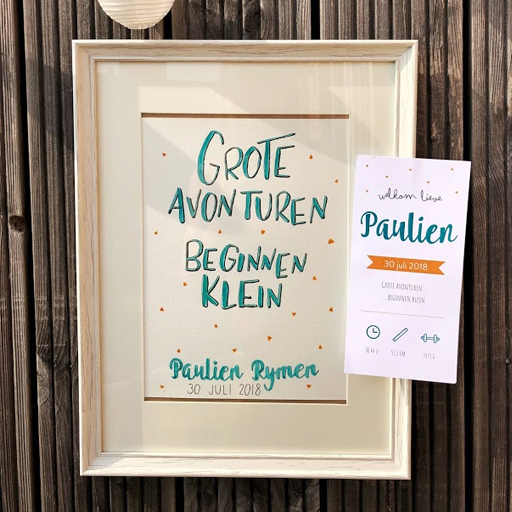 GROTE
AVONTUREN
BEGINNEN
KLEIN
Paulien Rymen
30 JULI 2018
welkom lieve
Paulien
30 juli 2018
GROTE AVONTUREN...
...BEGINNEN KLEIN